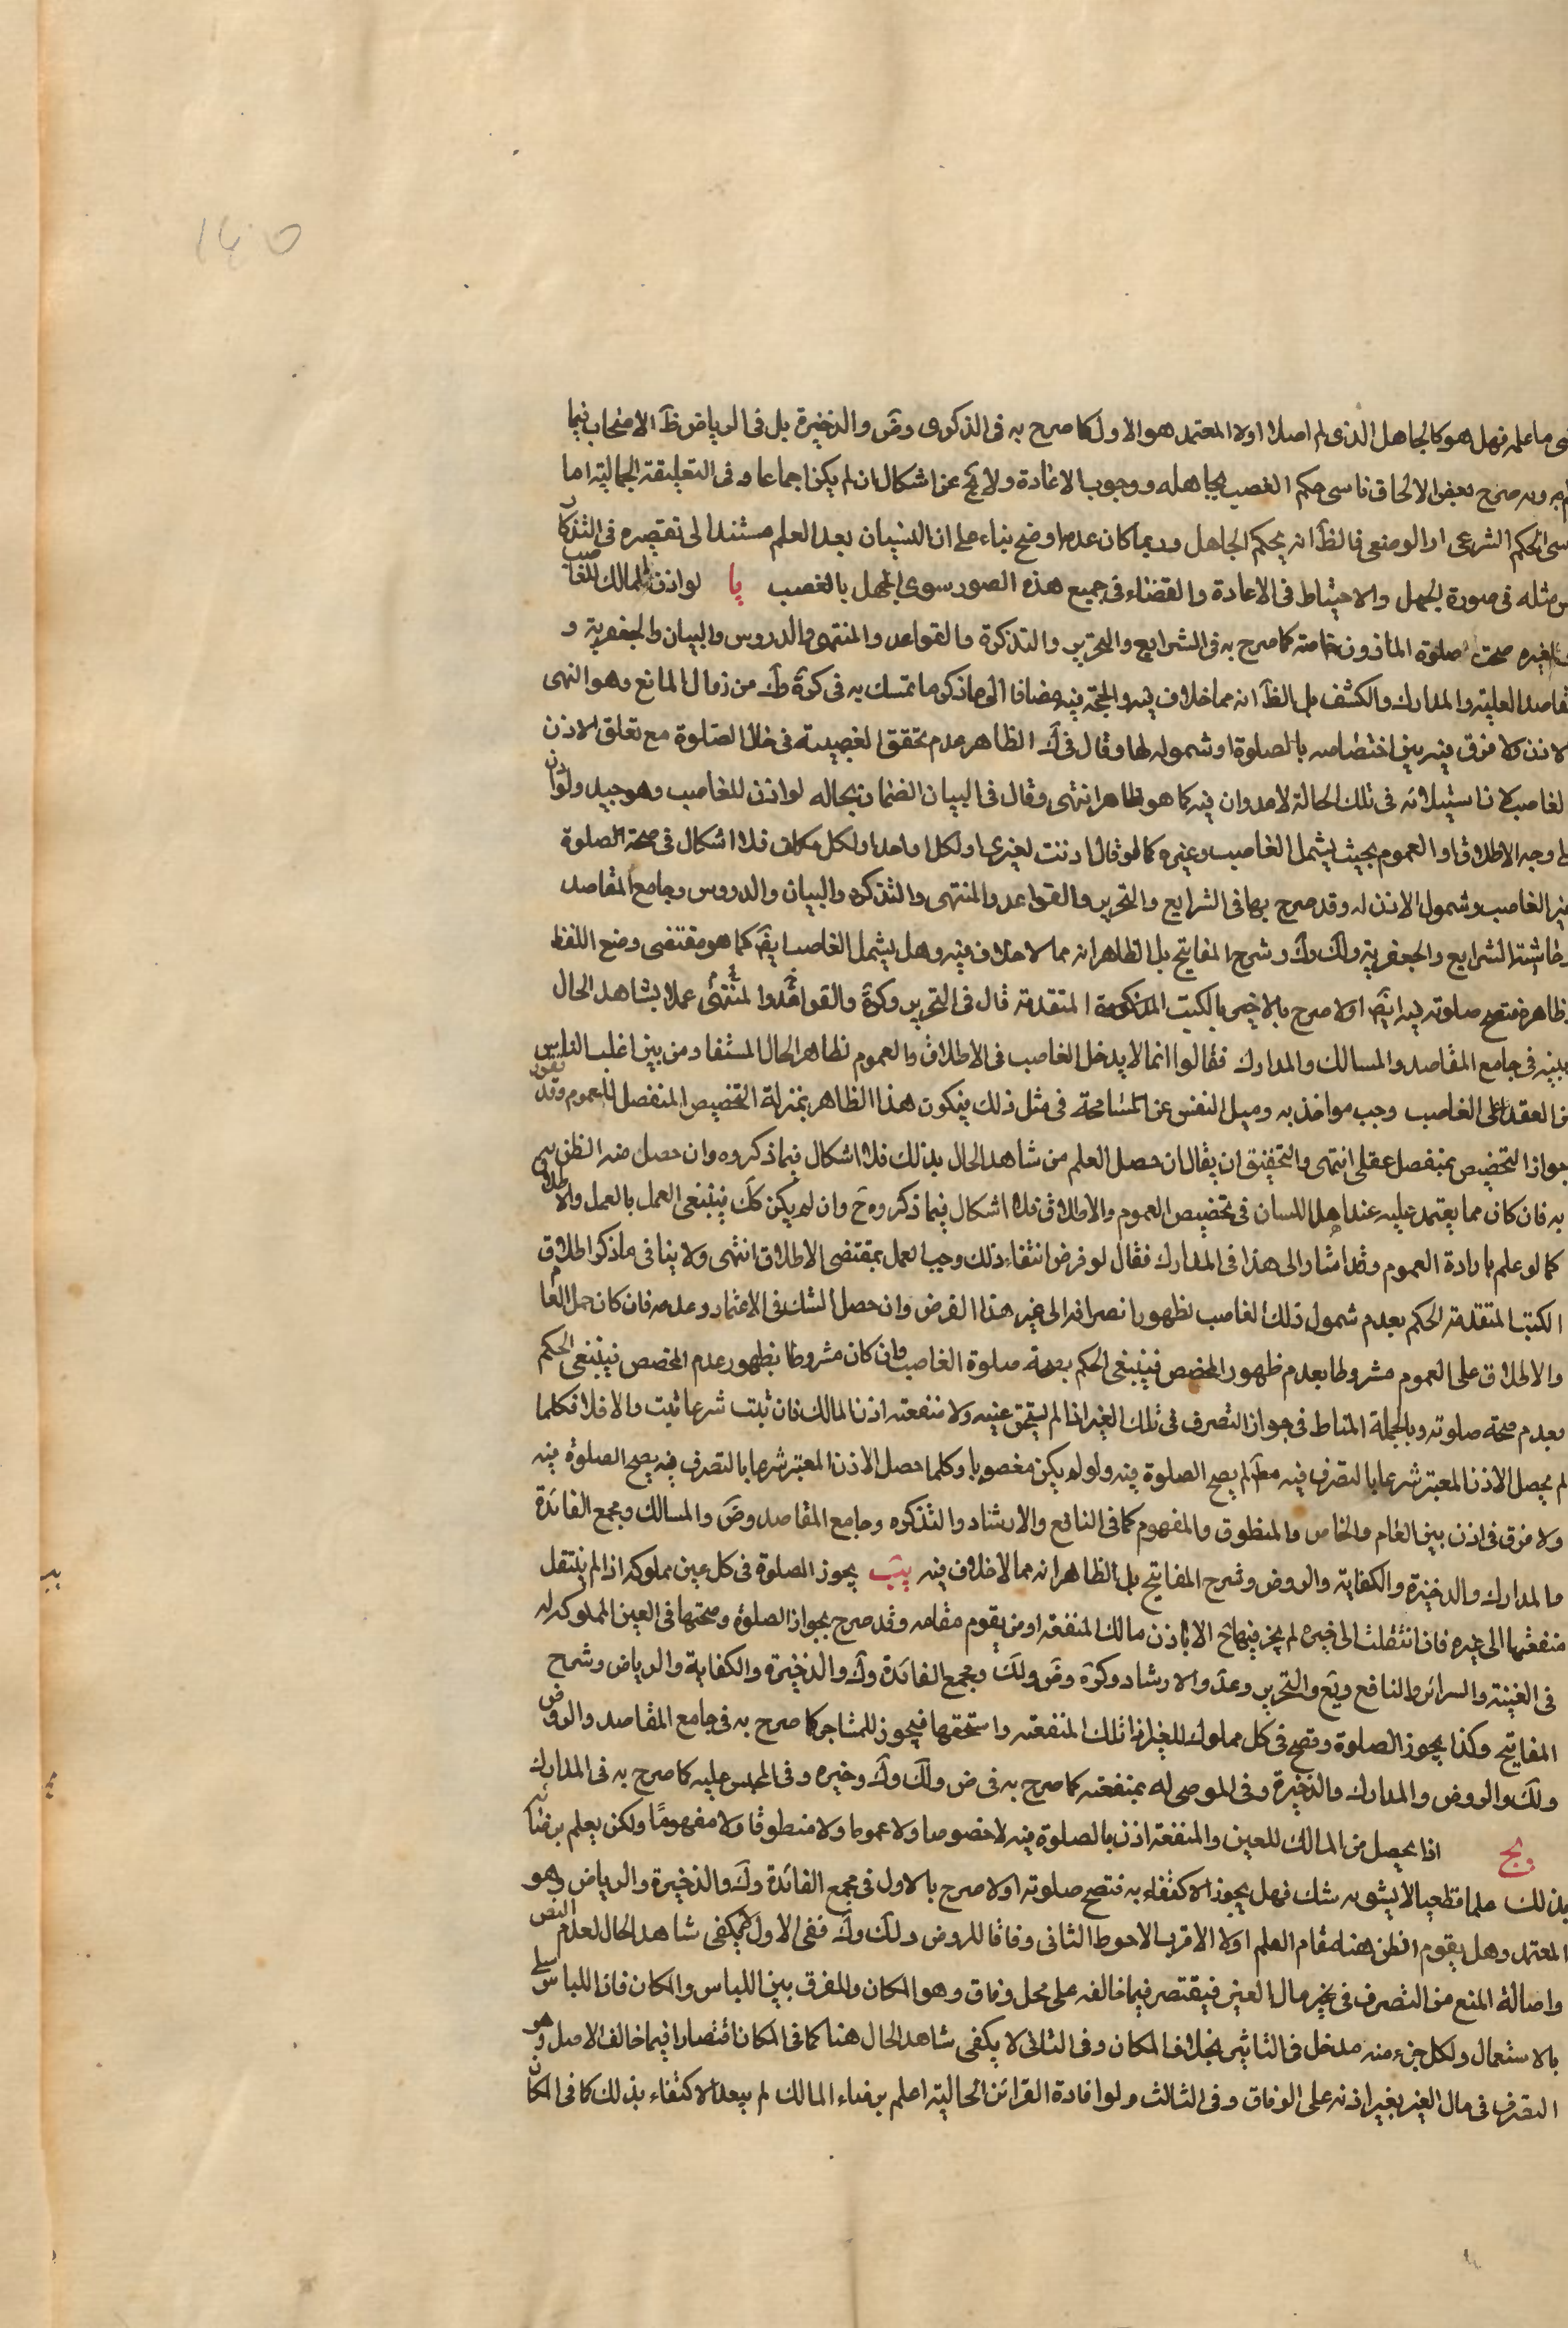 ١٤٥
ما علمه فهل هو كالجاهل الذى لم اصلا اولا المعتمد هو الاول كما صرح به فى الذكرى وض والذخيرة بل فى الرياض ظ الاصحاب فيما
به صرح بعض الالحاق ناسى حكم الغصب بجاهله ووجوب الاعادة ولا يخ عن اشكال ان لم يكن اجماعا وفى التعليقة الجمالية اما
الحكم الشرعى او الوضعى فالظ انه بحكم الجاهل وربما كان عدمه اوضح بناء على ان النسيان بعد العلم مستند الى تقصيره فى التذكار
مثله فى صورة الجهل والاحتياط فى الاعادة والقضاء فى جميع هذه الصور سوى الجهل بالغصب يا لو اذن المالك للغاصب
لغيره صحت صلوة الماذون خاصة كما صرح به فى الشرايع والتحرير والتذكرة والقواعد والمنتهى والدروس والبيان والجعفرية و
العلية والمدارك والكشف بل الظ انه مما لا خلاف فيه والحجة فيه مضافا الى ما ذكر ما تمسك به فى كرة وك من زوال المانع وهو النهى
ولا فرق فيه بين اختصاصه بالصلوة او شموله لها وقال فى ك الظاهر عدم تحقق الغصبية فى خلال الصلوة مع تعلق الاذن
لان استيلائه فى تلك الحالة لا عدوان فيه كما هو ظاهر انتهى وقال فى البيان الضمان بحاله لو اذن للغاصب وهو جيد ولو اذن
وجه الاطلاق او العموم بحيث يشمل الغاصب وغيره كما لو قال اذنت لغيرى او لكل احد او لكل مكلف فلا اشكال فى صحة الصلوة
الغاصب وشمول الاذن له وقد صرح بها فى الشرايع والتحرير والقواعد والمنتهى والتذكره والبيان والدروس وجامع المقاصد
الشرايع والجعفرية ولك وك وشرح المفاتيح بل الظاهر انه مما لا خلاف فيه وهل يشمل الغاصب ايض كما هو مقتضى وضع اللفظ
فتصح صلوته فيه ايض اولا صرح بالاخير بالكتب المذكورة المتقدمة قال فى التحرير وكرة والقواعد والمنتهى عملا بشاهد الحال
فى جامع المقاصد والمسالك والمدارك فقالوا انما لا يدخل الغاصب فى الاطلاق والعموم نظاهر الحال المستفاد من بين اغلب الناس
العقد على الغاصب وجب مواخذ به وميل النفس عن المسامحة فى مثل ذلك فيكون هذا الظاهر بمنزلة التخصيص المنفصل للعموم وقد تقرر
جواز التخصيص بمنفصل عقلى انتهى والتحقيق ان يقال ان حصل العلم من شاهد الحال بذلك فلا اشكال فيما ذكروه وان حصل منه الظن
به فان كان مما يعتمد عليه عند اهل اللسان فى تخصيص العموم والاطلاق فلا اشكال فيما ذكروه ح وان لم يكن كك فينبغى العمل بالعمل والاطلاق
كما لو علم بارادة العموم وقد اشار الى هذا فى المدارك فقال لو فرض انتفاء ذلك وجب العمل بمقتضى الاطلاق انتهى ولا ينافى ما ذكر اطلاق
الكتب المتقدمة الحكم بعدم شمول ذلك الغاصب لظهور انصرافه الى غير هذا الفرض وان حصل الشك فى الاعتماد وعدمه فان كان حمل العام
والاطلاق على العموم مشروطا بعدم ظهور المخصص فينبغى الحكم بصحة صلوة الغاصب وان كان مشروطا بظهور عدم المخصص فينبغى الحكم
بعدم صحة صلوته وبالجملة المناط فى جواز التصرف فى تلك الغير اذا لم يستحق عينه ولا منفعته اذن المالك فان ثبت شرعا ثبت والا فلا فكلما
لم يحصل الاذن المعتبر شرعا بالتصرف فيه مط لم يصح الصلوة فيه ولو لم يكن مغصوبا وكلما حصل الاذن المعتبر شرعا بالتصرف فيه يصح الصلوة فيه
ولا فرق فى اذن بين العام والخاص والمنطوق والمفهوم كما فى النافع والارشاد والتذكره وجامع المقاصد وض والمسالك ومجمع الفائدة
والمدارك والذخيرة والكفاية والروض وشرح المفاتيح بل الظاهر انه مما لا خلاف فيه يب يجوز الصلوة فى كل عين مملوكه اذا لم ينتقل
منفعتها الى غيره فاذا انتقلت الى غيره لم يجز فيها ح الا باذن مالك المنفعة او من يقوم مقامه وقد صرح بجواز الصلوة وصحتها فى العين المملوكه له
فى الغنية والسرائر والنافع ويع والتحرير وعد والارشاد وكرة وض ولك ومجمع الفائدة وك والذخيرة والكفاية والرياض وشرح
المفاتيح وكذا يجوز الصلوة وتصح فى كل مملوك للغير اذا تلك المنفعته واستحقها فيجوز للمستاجر كما صرح به فى جامع المقاصد والروض
ولك والروض والمدارك والذخيرة وفى الموصى له بمنفعته كما صرح به فى ض ولك وك وخيره وفى المحبس عليه كما صرح به فى المدارك
يج اذا يحصل من المالك للعين والمنفعة اذن بالصلوة فيه لا خصوصا ولا عموما ولا منطوقا ولا مفهوما ولكن يعلم برضائه
بذلك علما قطعيا لا يشوبه شك فهل يجوز الاكتفاء به فتصح صلوته اولا صرح بالاول فى مجمع الفائدة وك والذخيرة والرياض وهو
المعتمد وهل يقوم الظن هنا مقام العلم اولا الاقرب الاحوط الثانى وفاقا للروض ولك وك ففى الاول لا يكفى شاهد الحال لعدم النص
واصالة المنع من التصرف فى غير مال الغير فيقتصر فيما خالفه على محل وفاق وهو المكان والفرق بين اللباس والمكان فان اللباس يبلى
بالاستعمال ولكل جزء منه مدخل فى التاثير بخلاف المكان وفى الثانى لا يكفى شاهد الحال هنا كما فى المكان اقتصارا فيما خالف الاصل وهو
التصرف فى مال الغير بغير اذنه على الوفاق وفى الثالث ولو افادة القرائن الحالية اعلم برضاء المالك لم يبعد الاكتفاء بذلك كما فى المكان